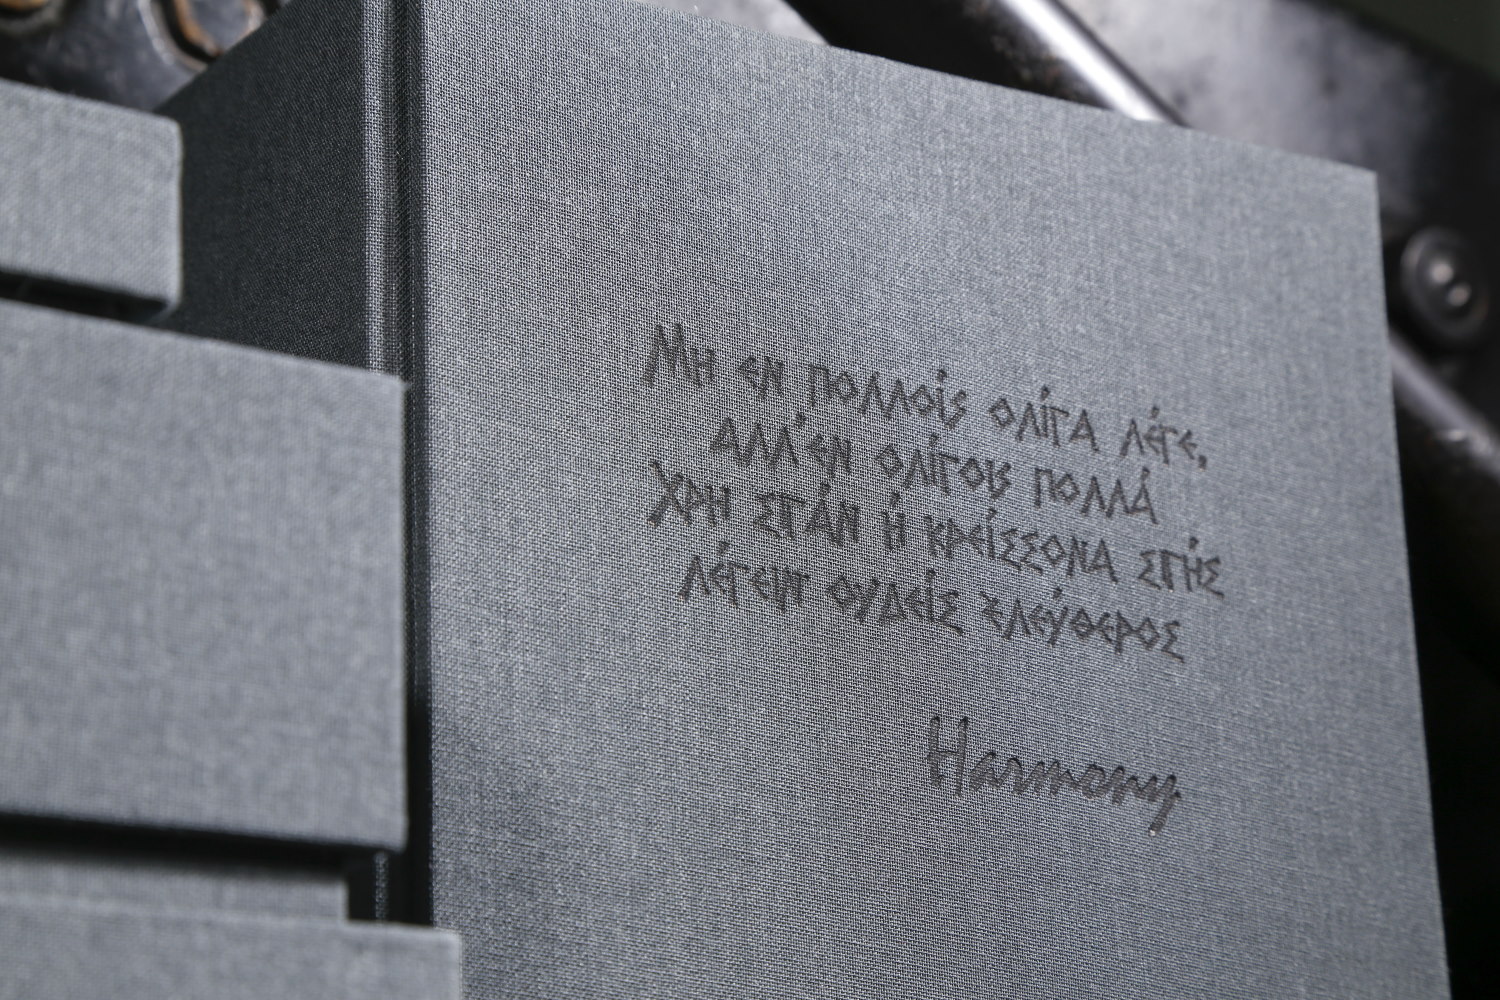 Μη εν πολλοίς ολίγα λέγε,
αλλ'εν ολίγοις πολλά
Χρη σιγάν ή κρείσσονα σιγής
λέγειν ουδείς ελεύθερος
Harmony